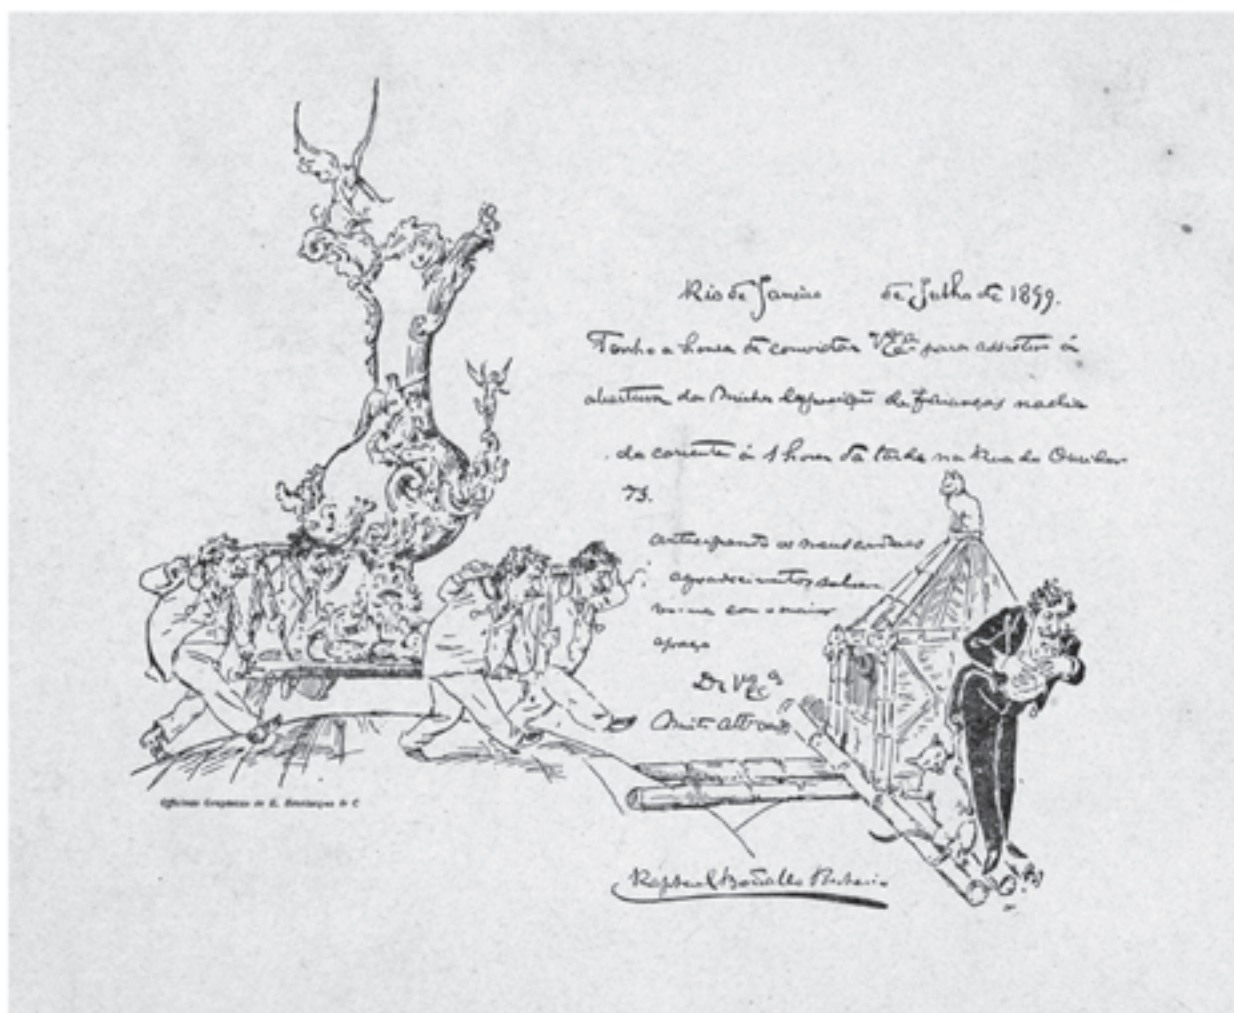 Rio de Janeiro de Julho de 1899.
Tenho a honra de convidar V. Exa. para assistir á
abertura da Minha Exposição de faianças no dia
do corrente á 1 hora da tarde na Rua do Ouvidor
73.
antecipando os meus cordeaes
agradecimentos subscre-
vo-me com o maior
apreço
De V. Exa.
Muito Atto
Officinas Graphicas de & C
Raphael Bordallo Pinheiro